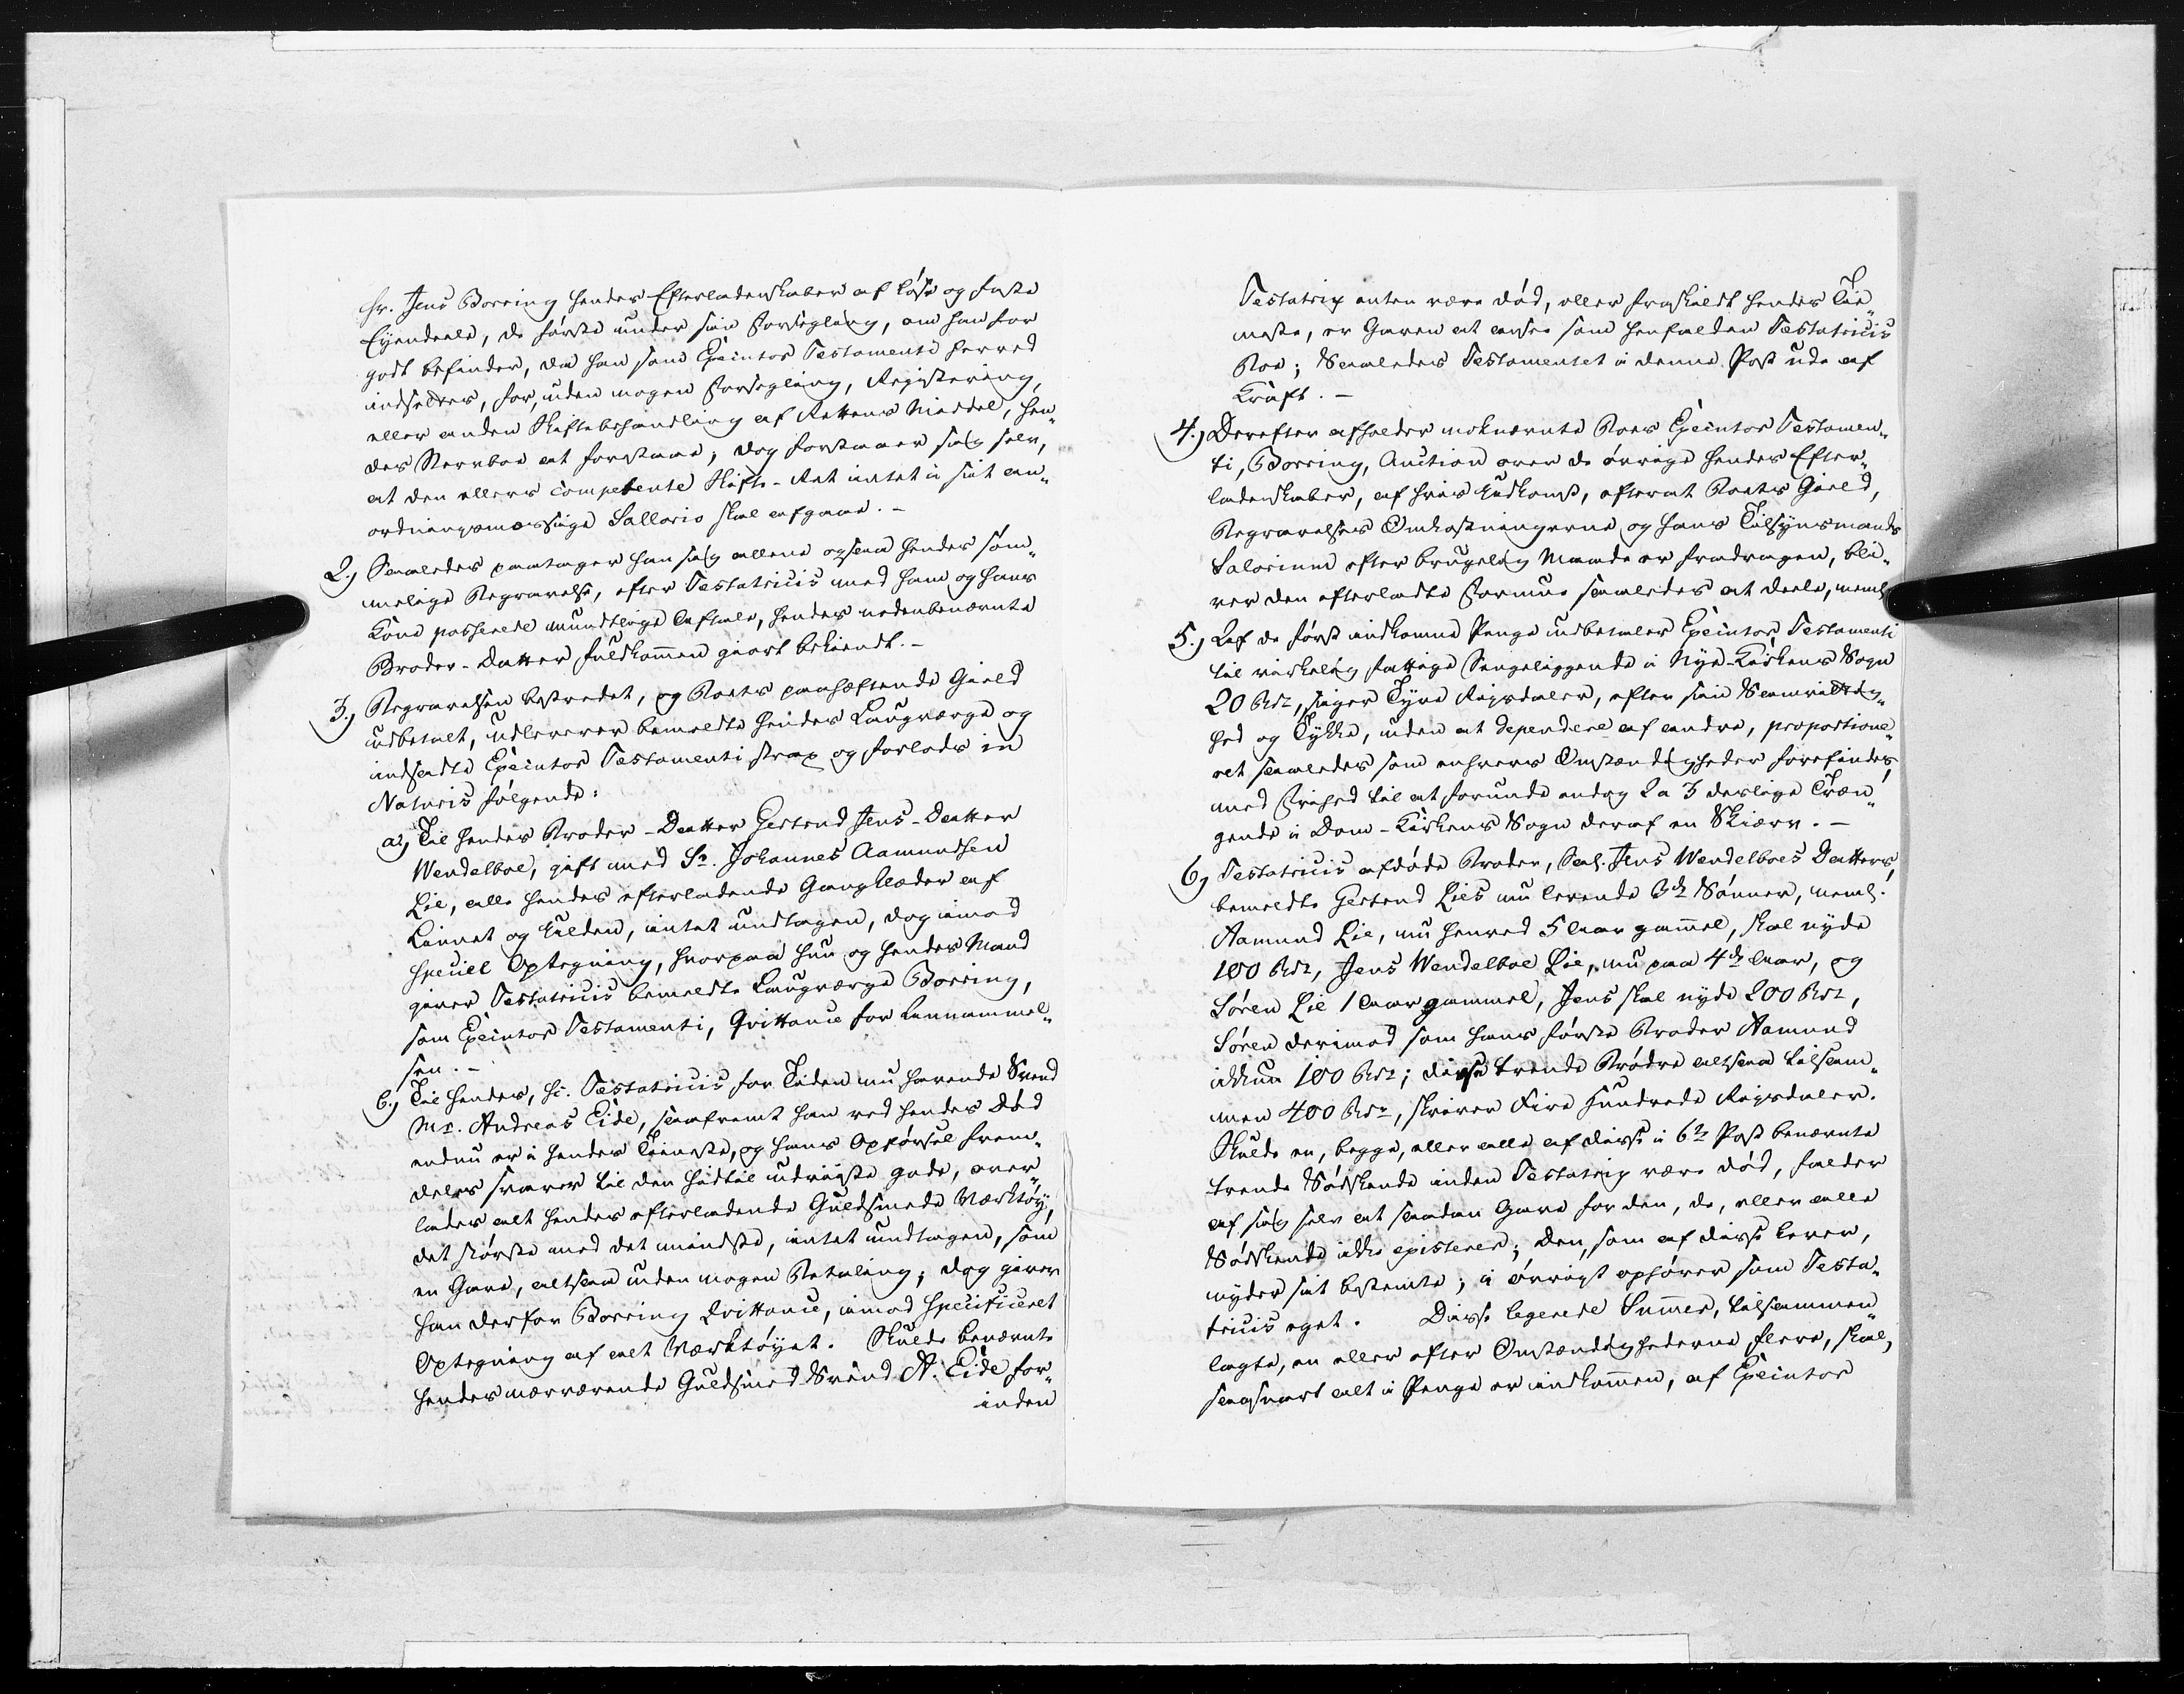 Hr. Jens Borring hendes Efterladenskaber af løse og faste
Eyendeele, de første under sin Forsegling, om han for
godt befinder, da han som Executor Testamenti herved
indsættes, for, uden nogen Forsegling, Registering,
eller anden Skiftebehandling af Rettens Middel, hen„
des Sterrboe at forestaae; dog forstaaer sig selv,
at den ellers competente Skifte-Ret intet i sit an„
ordningsmæssige Sallario skal afgaae. –
2.) Saaledes paatager han sig allene ogsaa hendes søm„
melige Begravelse, efter Testatricis med ham og hans
Kone passerede mundtlige Aftale, hendes nedenbenævnte
Broder-Datter fuldkommen giort bekiendt. –
3.) Begravelsen bestredet, og Boets paahæftende Gield
udbetalt, udleverer bemeldte hendes Laugværge og
indsadte Executor Testamenti strax og forlods in
Naturis følgende:
a.) Til hendes Broder-Datter Gertrud Jens-Datter
Wendelboe, gift med Sr. Johannes Aamundsen
Lie, alle hendes efterladende Gangklæder af
Linnet og Uldent, intet undtagen, dog imod
speciel Optegning, hvorpaa hun og hendes Mand
giver Testatricis bemeldte Laugværge Borring,
som Executor Testamenti, Qvittance for Annammel„
sen. –
b.) Til hendes, sc. Testatricis for Tiden nu havende Svend
Mr. Andreas Eide, saafremt han ved hendes Død
endnu er i hendes Tieneste, og hans Opførsel frem„
deles svarer til den hidtil udviiste gode, over„
lades alt hendes efterladende Guldsmeds Værktøy,
det største med det mindste, intet undtagen, som
en Gave, altsaa uden nogen Betaling; dog giver
han derfor Borring Qvittance, imod specificeret
Optegning af alt Værktøyet. Skulde benævnte
hendes nærværende Guldsmed-Svend A. Eide for„
inden
Testatrix enten være død, eller fraskildt hendes Tie„
neste, er Gaven at ansee som henfalden Testatricis
Boe; Saaledes Testamentet i denne Post ude af
Kraft. –
4.) Derefter afholder moknævnte Boes Executor Testamen„
ti, Borring, Auction over de øvrige hendes Efter„
ladenskaber, af hvis Udkomst, efterat Boets Gield,
Begravelses Omkostningerne og hans Tilsynsmands
Salarium efter brugelig Maade er fradragen, bli„
ver den efterladte Formue saaledes at deele, neml.
5.) Af de først indkomne Penge udbetaler Executor Testamenti
til virkelig fattige Sengeliggende i Nye-Kirkens Sogn
20 Rdr, siger Tyve Rigsdaler, efter sin Samvittig„
hed og Tykke, uden at dependere af andre, proportione„
ret saaledes som enhvers Omstændigheder forefindes,
med Frihed til at forunde endog 2 a 3 deslige Træn„
gende i Dom-Kirkens Sogn deraf en Skiærv. –
6.) Testatricis afdøde Broder, Sal. Jens Wendelboes Datters,
bemeldte Gertrud Lies nu levende 3de Sønner, neml.
Aamund Lie, nu henved 5 Aar gammel, skal nyde
100 Rdr, Jens Wendelboe Lie, nu paa 4de Aar, og
Søren Lie 1 Aar gammel, Jens skal nyde 200 Rdr,
Søren derimod som hans første Broder Aamund
ikkun 100 Rdr; disse trende Brødre altsaa tilsam„
men 400 Rdr, skriver Fire Hundrede Rigsdaler.
Skulde en, begge, eller alle af disse i 6te Post benævnte
trende Sødskende inden Testatrix være død, falder
af sig selv at saadan Gave for den, de, eller alle
Sødskende ikke existerer; Den, som af disse lever,
nyder sit bestemte; i øvrigt ophører som Testa„
tricis eget. Disse legerede Summer, tilsammen„
lagte, en eller efter Omstændighederne flere, skal,
saasnart alt i Penge er indkommen, af Executor